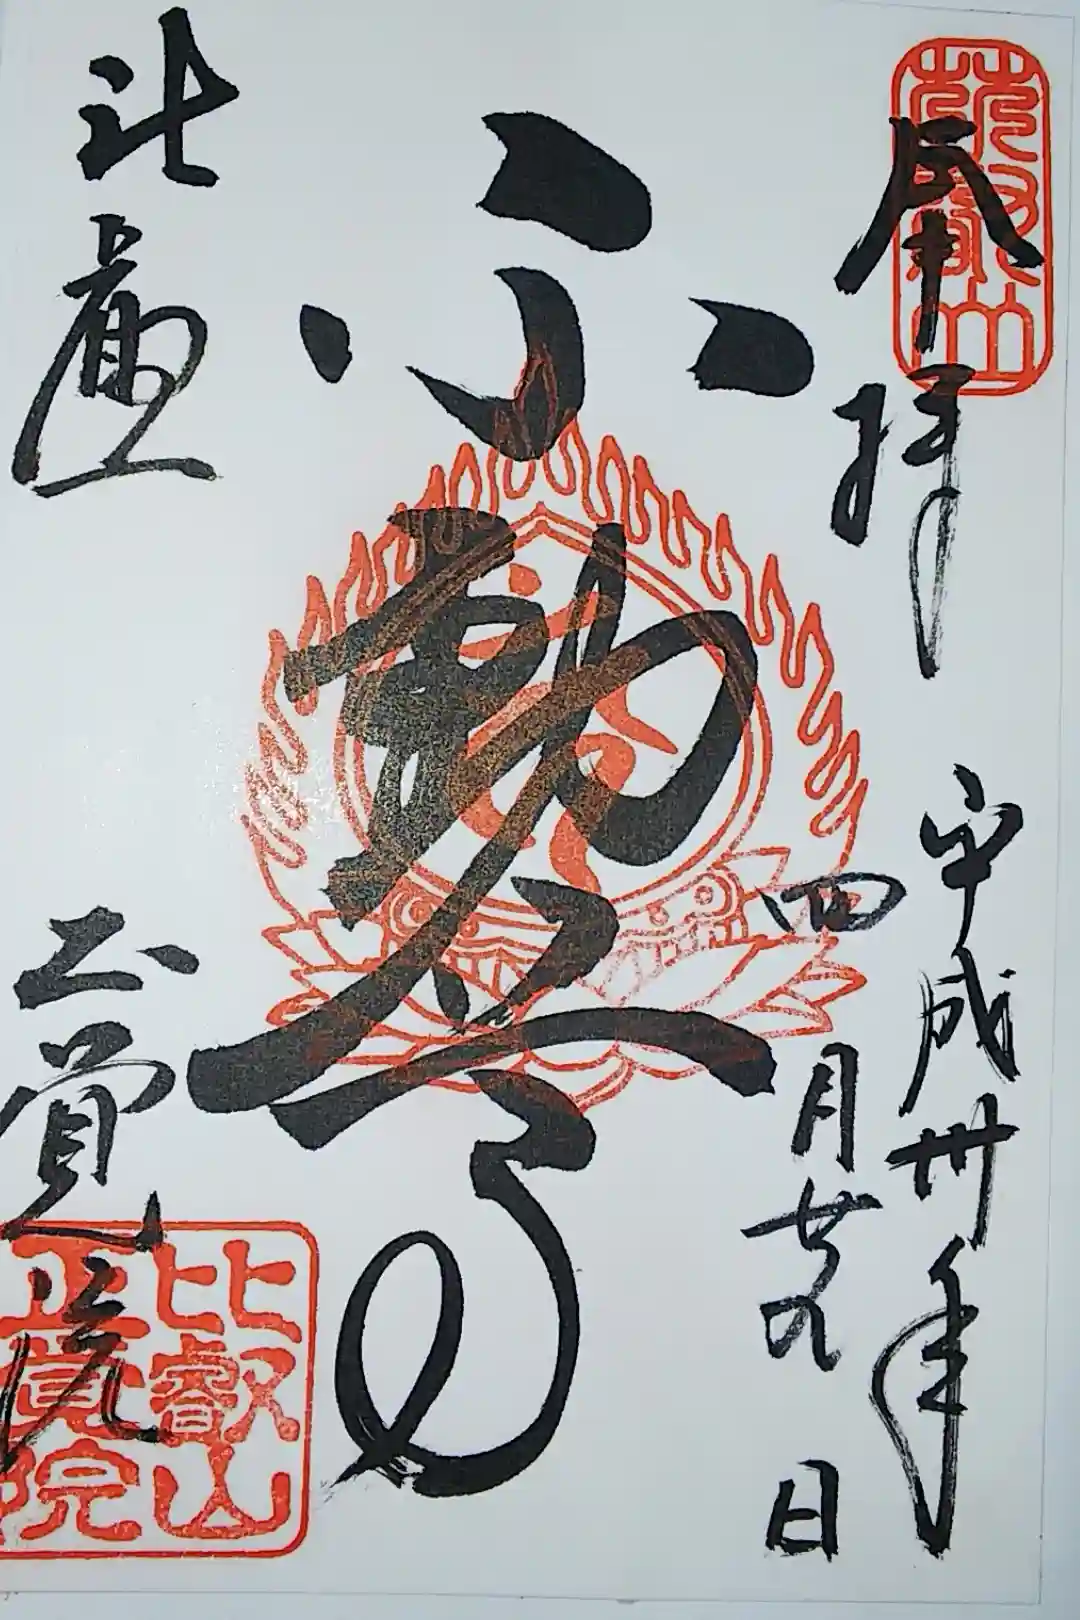 奉拝
平成卅年
四月廿九日
不動尊
比叡山
正覚院
比叡山
正覚院